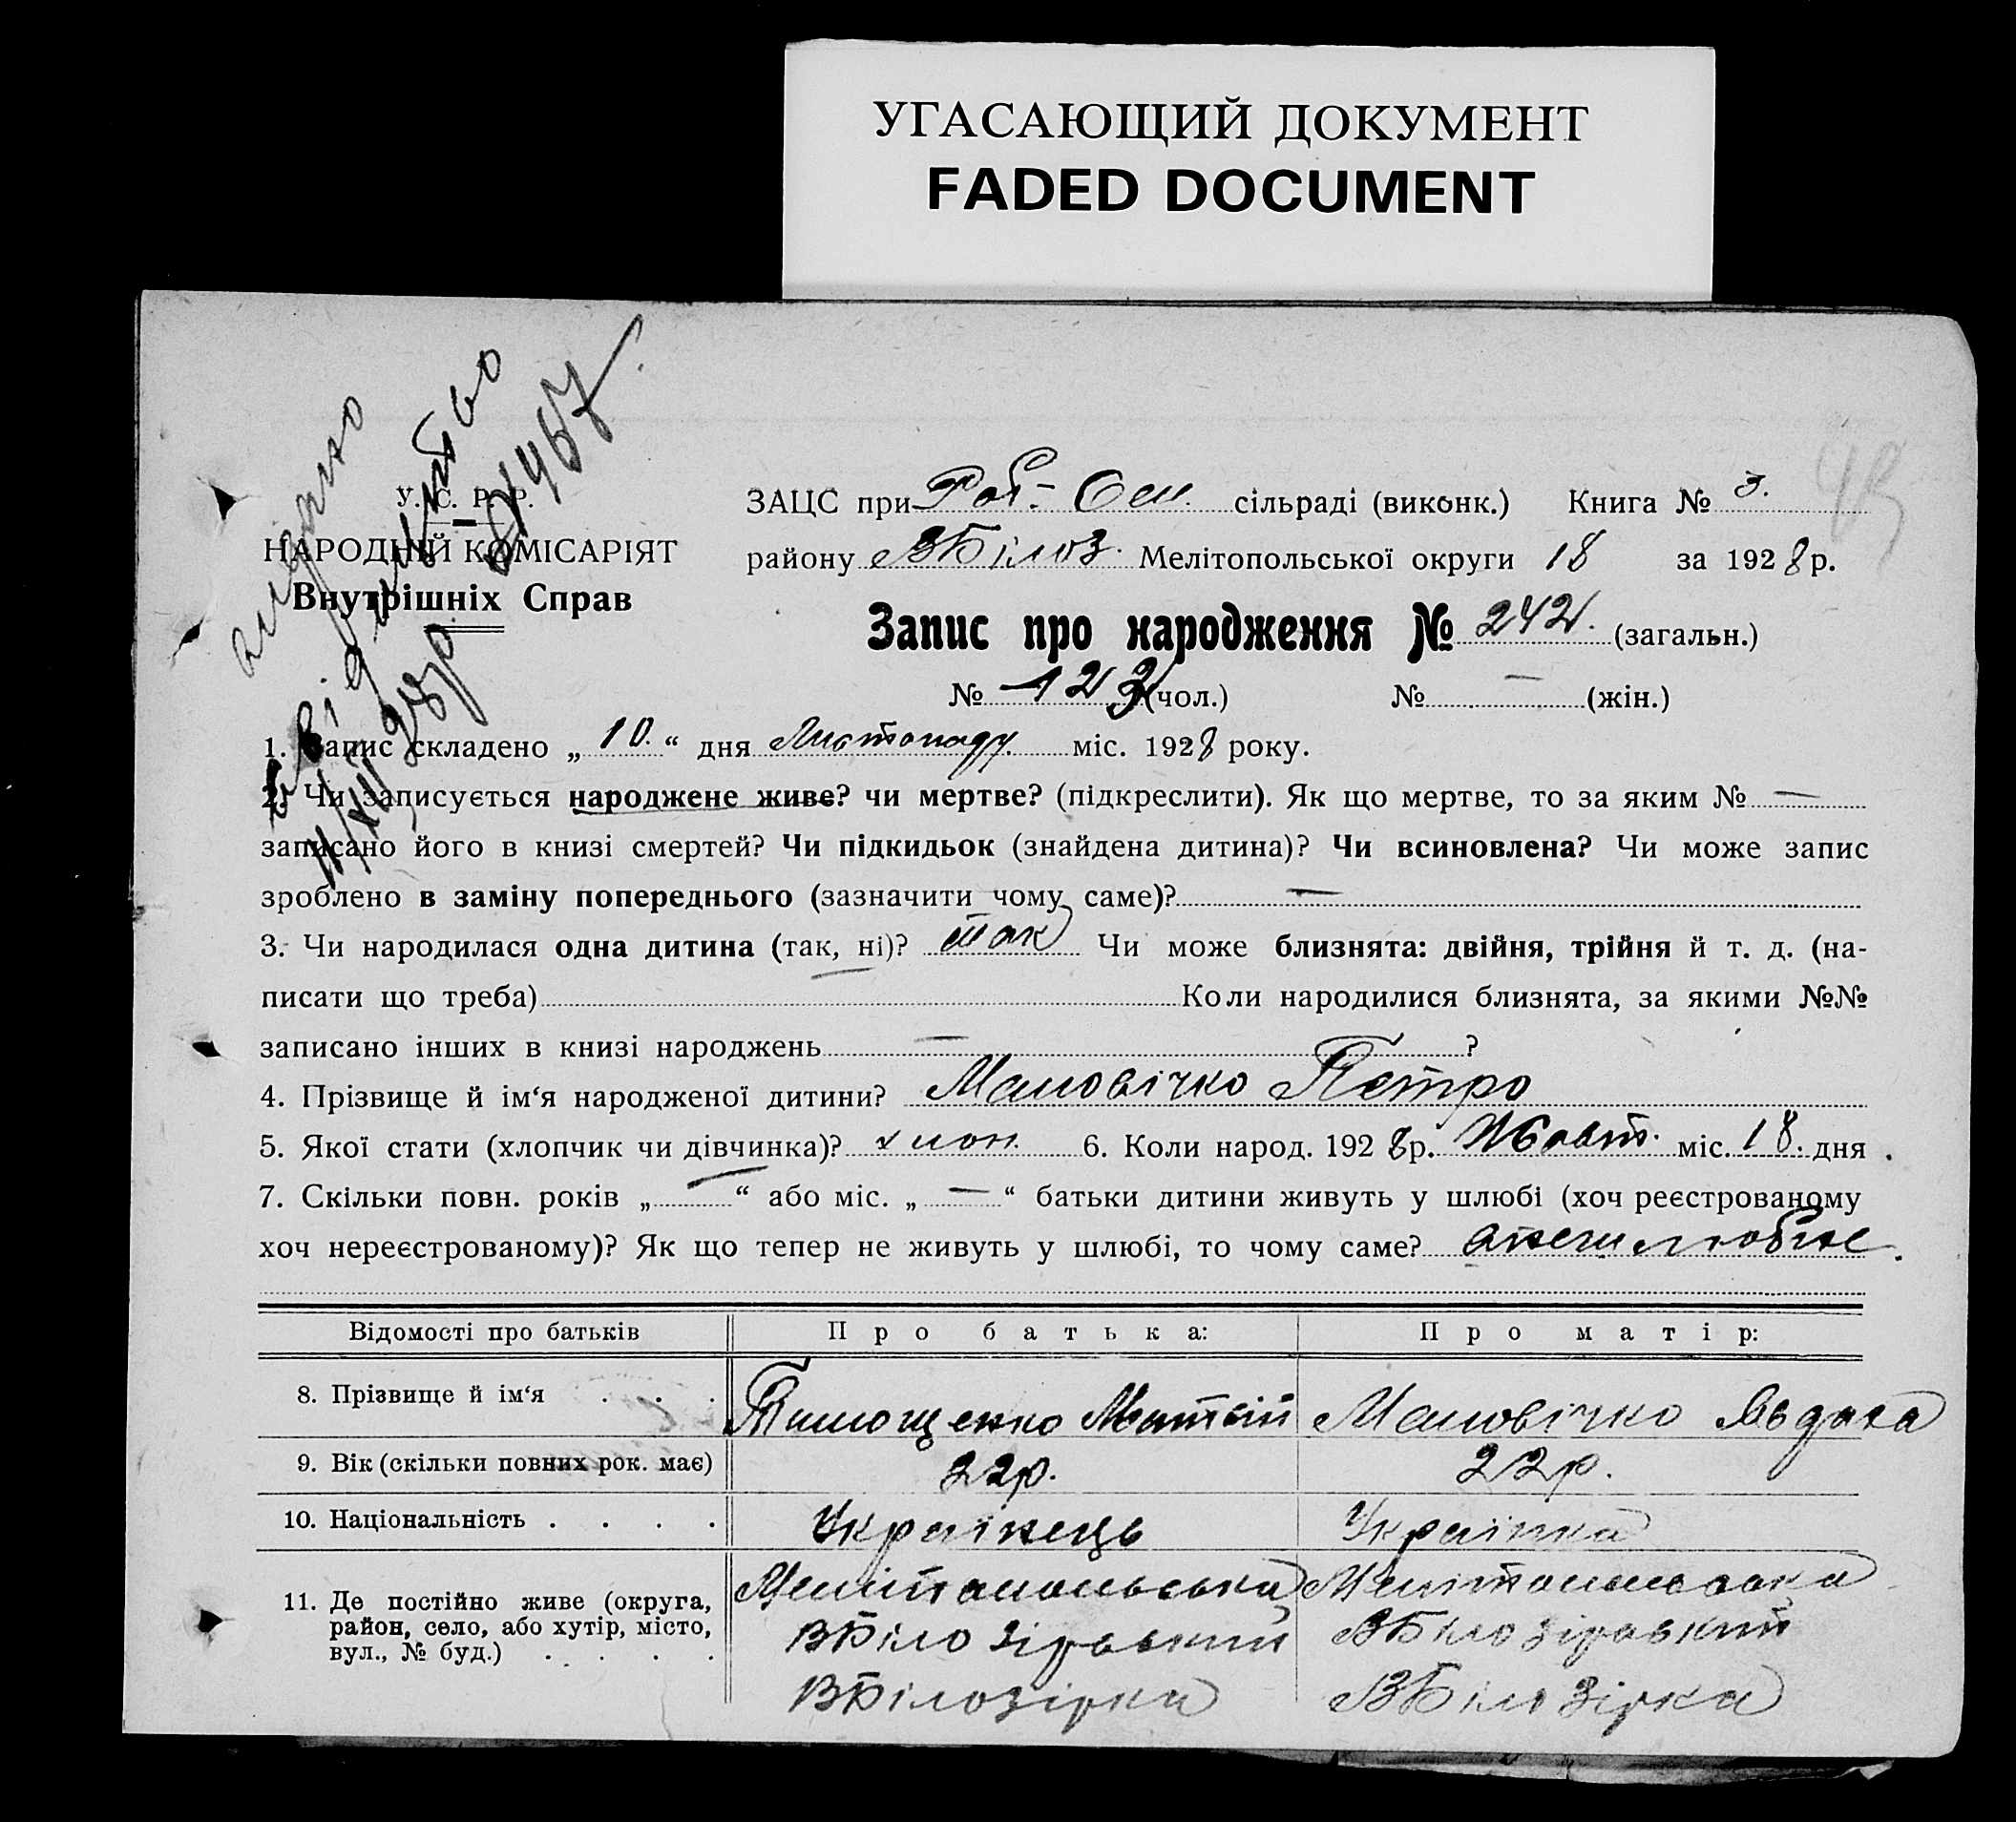 УГАСАЮЩИЙ ДОКУМЕНТ
FADED DOCUMENT
видано
свідоцтво
11/XII 28 р.
У. С. Р. Р.
НАРОДНІЙ КОМІСАРІЯТ
Внутрішніх Справ
ЗАЦС при Роб- сільраді (виконк.) Книга № 3.
району ВБілоз. Мелітопольської округи 18 за 1928 р.
Запис про народження № 242. (загальн.)
№ 123 (чол.) № — (жін.)
1. Запис складено „ 10. “ дня Листопаду міс. 1928 року.
2. Чи записується народжене живе? чи мертве? (підкреслити). Як що мертве, то за яким № —
записано його в книзі смертей? Чи підкидьок (знайдена дитина)? Чи всиновлена? Чи може запис
зроблено в заміну попереднього (зазначити чому саме)? —
3. Чи народилася одна дитина (так, ні)? так Чи може близнята: двійня, трійня й т. д. (на-
писати що треба) — Коли народилися близнята, за якими №№
записано інших в книзі народжень — ?
4. Прізвище й ім‘я народженої дитини? Маловічко Петро
5. Якої стати (хлопчик чи дівчинка)? хлоп. 6. Коли народ. 1928 р. Жовт. міс. 18. дня
7. Скільки повн. років „ — “ або міс. „ — “ батьки дитини живуть у шлюбі (хоч реєстрованому
хоч нереєстрованому)? Як що тепер не живуть у шлюбі, то чому саме?
Відомості про батьків Про батька: Про матір:
8. Прізвище й ім‘я . . . Тимощенко Матвій Маловічко Явдоха
9. Вік (скільки повних рок. має) 22р. 22р.
10. Національність . . . . Українець Українка
11. Де постійно живе (округа, район, село, або хутір, місто, вул., № буд.) . . . . Мелітопольська Мелітопольська
ВБілозірський ВБілозірський
ВБілозірка ВБілозірка